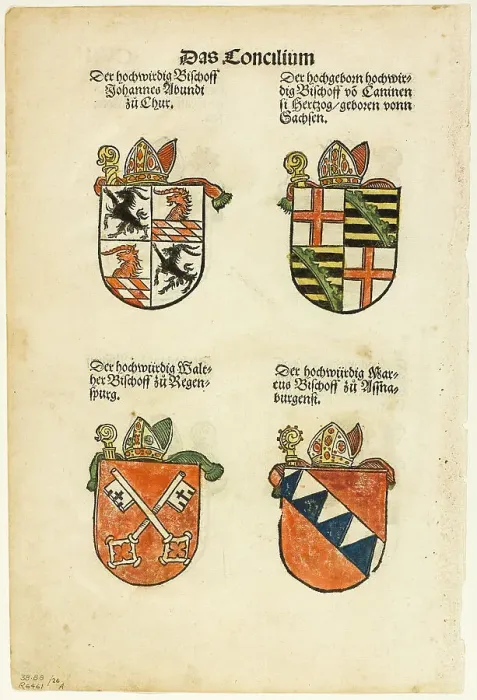 Das Concilium
Der hochwirdig Bischoff
Johannes Abundi
zů Chur.
Der hochgeborn hochwir-
dig Bischoff vō Caminen
si Hertzog/geboren vonn
Sachsen.
Der hochwürdig Walt-
her Bischoff zů Regen-
spurg.
Der hochwürdig Mar-
cus Bischoff zů Assna-
burgensi.
38.88 /26
R6461 A